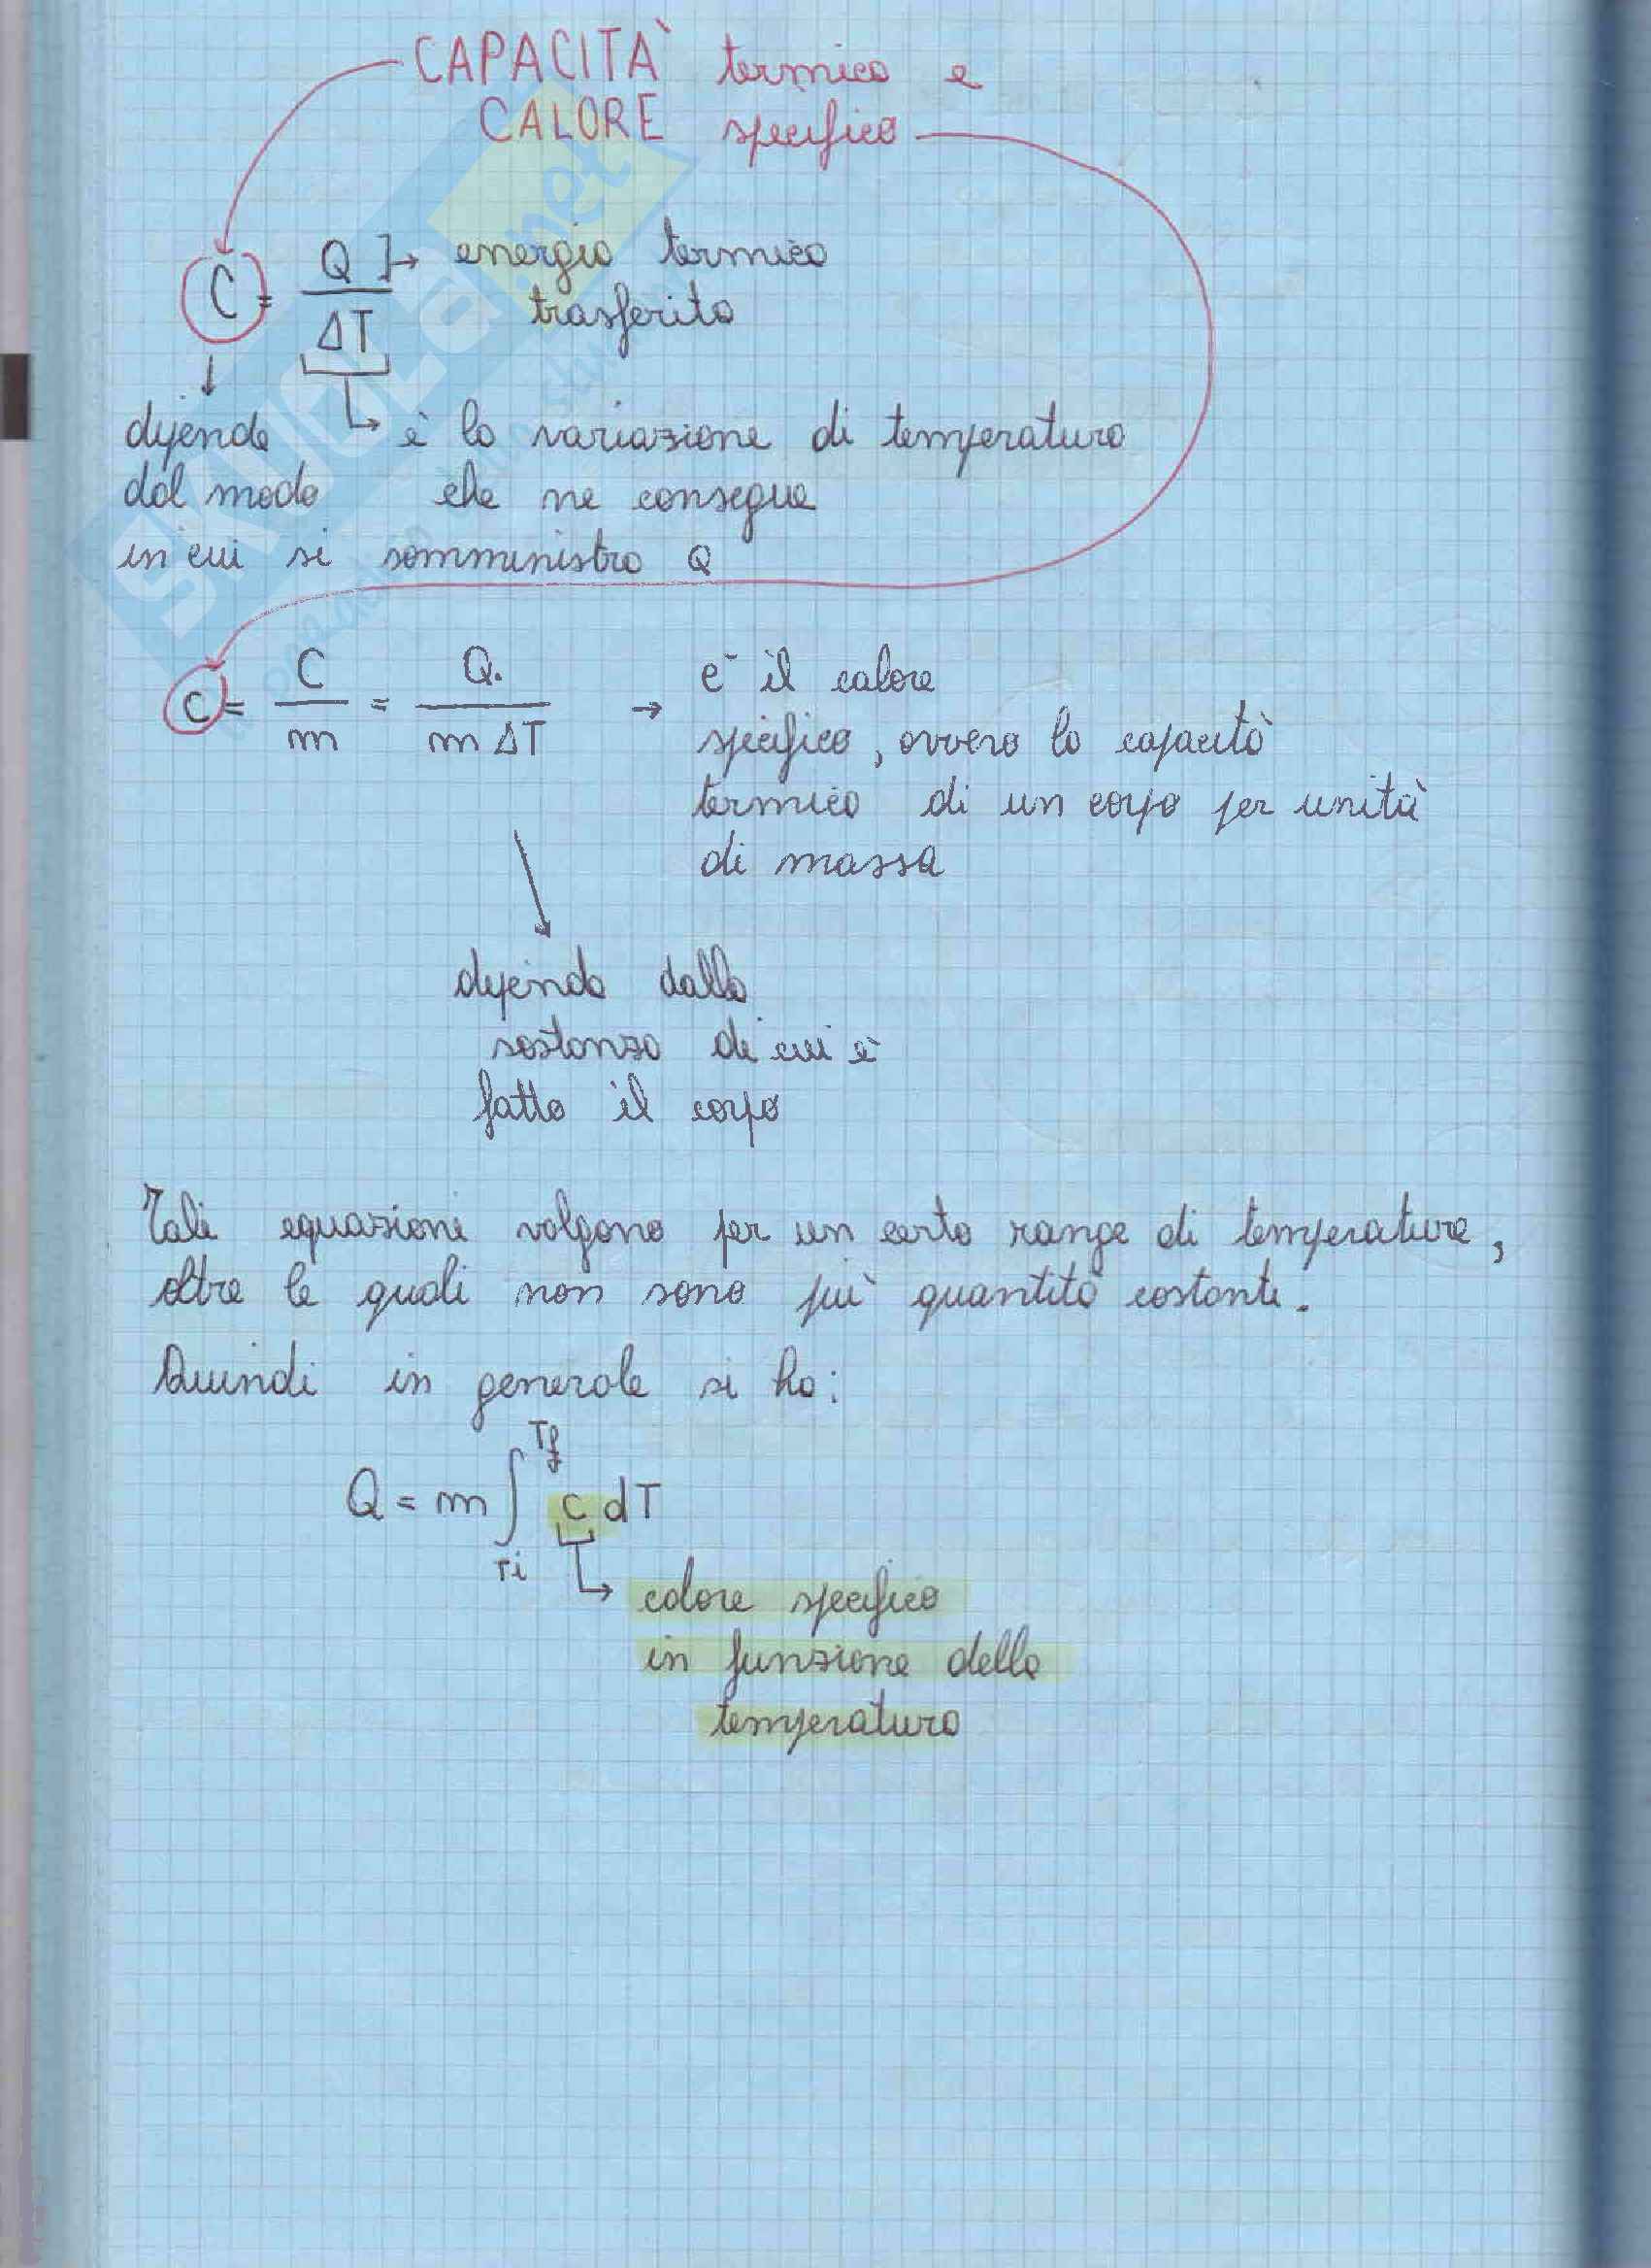 CAPACITÀ termica e
CALORE specifico
C = Q / ΔT
energia termica
trasferita
dipende
dal modo
in cui si somministra Q
è la variazione di temperatura
che ne consegue
c = C / m = Q / m ΔT
→ è il calore
specifico, ovvero la capacità
termica di un corpo per unità
di massa
dipende dalla
sostanza di cui è
fatto il corpo
Tali equazione valgono per un certo range di temperature,
oltre le quali non sono più quantità costanti.
Quindi in generale si ha:
Q = m ∫ c dT
Tf
Ti
calore specifico
in funzione della
temperatura
SKUOLA.net